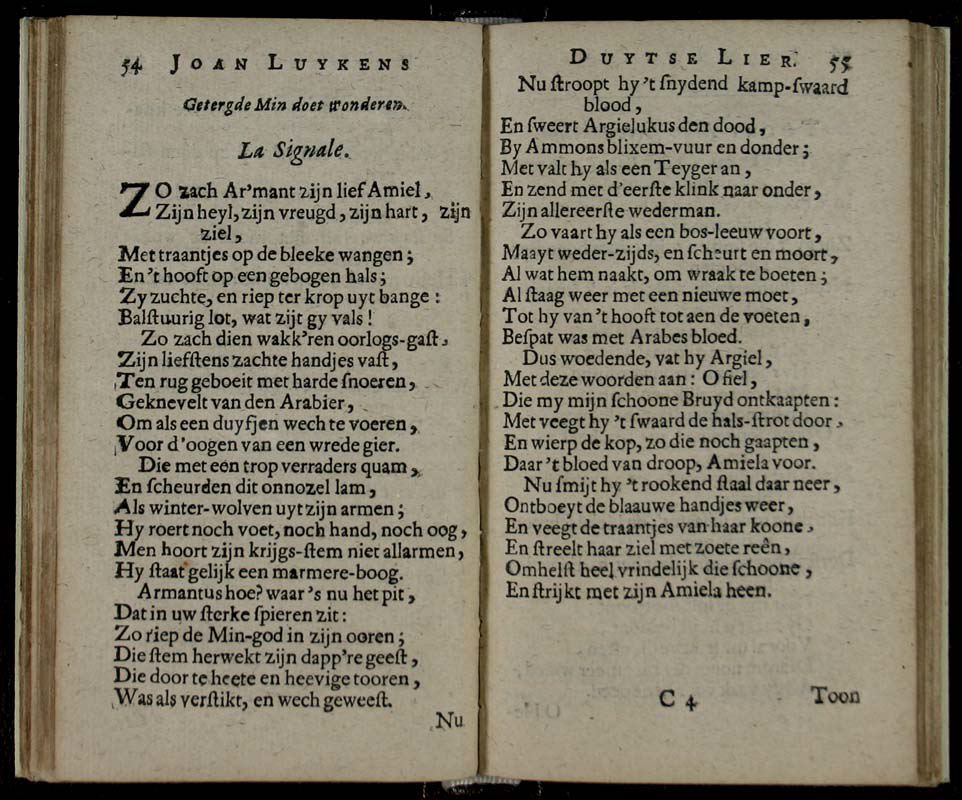 54 JOAN LUYKENS
Getergde Min doet wonderen.
La Signale.
ZO zach Ar'mant zijn lief Amiel,
Zijn heyl, zijn vreugd, zijn hart, zijn
ziel,
Met traantjes op de bleeke wangen;
En 't hooft op een gebogen hals;
Zy zuchte, en riep ter krop uyt bange:
Balſtuurig lot, wat zijt gy vals!
Zo zach dien wakk'ren oorlogs-gaſt,
Zijn liefſtens zachte handjes vaſt,
Ten rug geboeit met harde ſnoeren,
Geknevelt van den Arabier,
Om als een duyfjen wech te voeren,
Voor d'oogen van een wrede gier.
Die met een trop verraders quam,
En ſcheurden dit onnozel lam,
Als winter-wolven uyt zijn armen;
Hy roert noch voet, noch hand, noch oog,
Men hoort zijn krijgs-ſtem niet allarmen,
Hy ſtaat gelijk een marmere-boog.
Armantus hoe? waar's nu het pit,
Dat in uw ſterke ſpieren zit:
Zo riep de Min-god in zijn ooren;
Die ſtem herwekt zijn dapp're geeſt,
Die door te heete en heevige tooren,
Was als verſtikt, en wech geweeſt.
Nu
DUYTSE LIER. 55
Nu ſtroopt hy 't ſnydend kamp-ſwaard
blood,
En ſweert Argielukus den dood,
By Ammons blixem-vuur en donder;
Met valt hy als een Teyger an,
En zend met d'eerſte klink naar onder,
Zijn allereerſte wederman.
Zo vaart hy als een bos-leeuw voort,
Maayt weder-zijds, en ſcheurt en moort,
Al wat hem naakt, om wraak te boeten;
Al ſtaag weer met een nieuwe moet,
Tot hy van 't hooft tot aen de voeten,
Beſpat was met Arabes bloed.
Dus woedende, vat hy Argiel,
Met deze woorden aan: O fiel,
Die my mijn ſchoone Bruyd ontkaapten:
Met veegt hy 't ſwaard de hals-ſtrot door,
En wierp de kop, zo die noch gaapten,
Daar 't bloed van droop, Amiela voor.
Nu ſmijt hy 't rookend ſtaal daar neer,
Ontboeyt de blaauwe handjes weer,
En veegt de traantjes van haar koone,
En ſtreelt haar ziel met zoete reên,
Omhelſt heel vrindelijk die ſchoone,
En ſtrijkt met zijn Amiela heen.
C 4 Toon